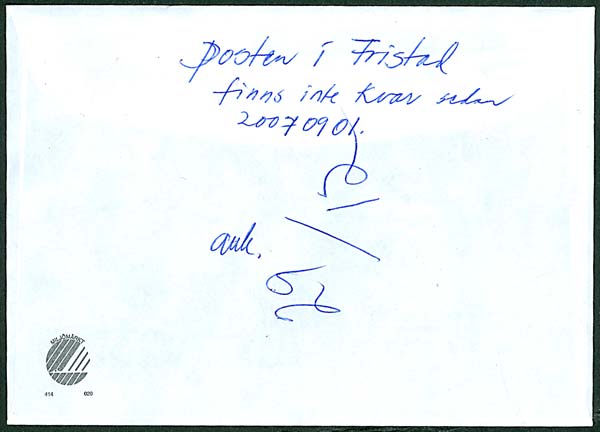 Posten i Fristad
finns inte kvar sedan
20070901.
ank.
MILJÖMÄRKT
414 020